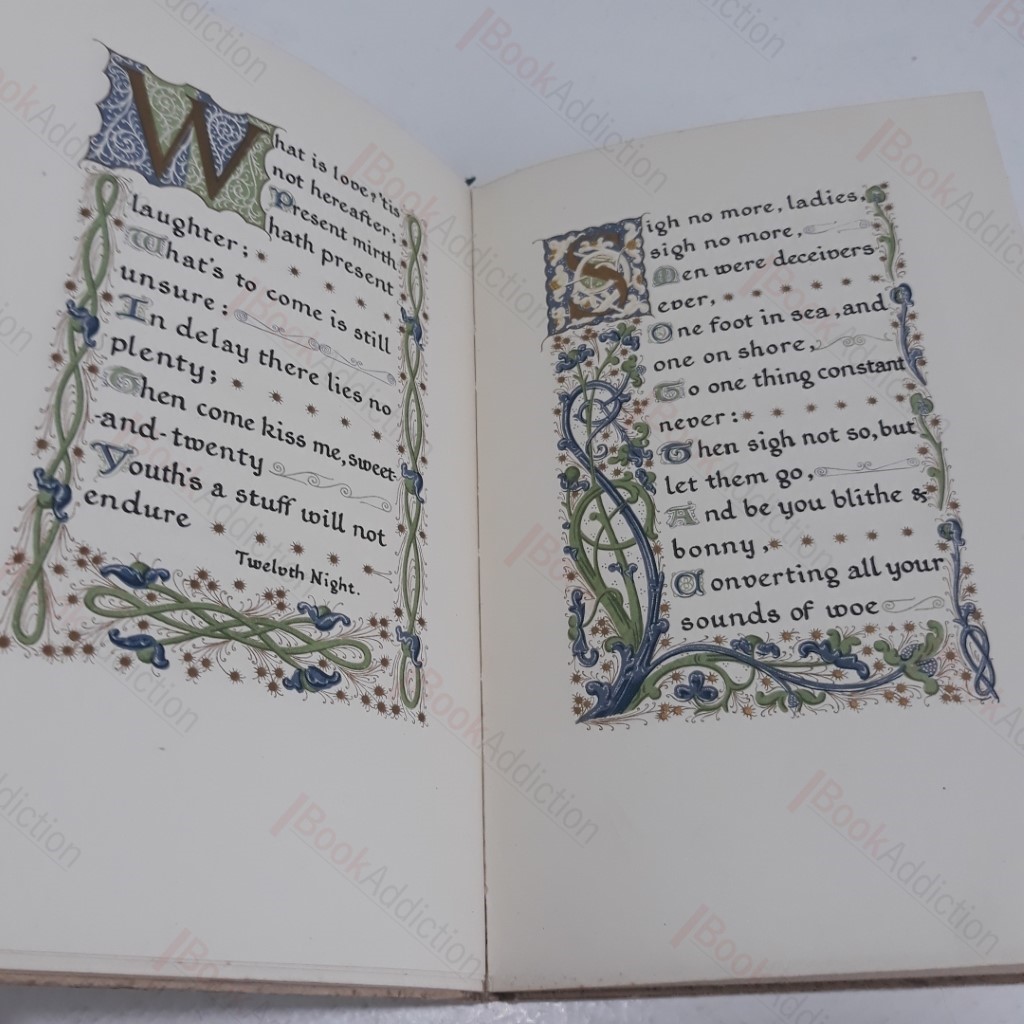 What is love,?'tis
not hereafter;
Present mirth
hath present
laughter;
What's to come is still
unsure:
In delay there lies no
plenty;
Then come kiss me, sweet
-and-twenty
Youth's a stuff will not
endure
Twelvth Night.
Sigh no more, ladies,
sigh no more,
Men were deceivers
ever,
One foot in sea, and
one on shore,
To one thing constant
never:
Then sigh not so, but
let them go,
And be you blithe &
bonny,
Converting all your
sounds of woe
BookAddiction